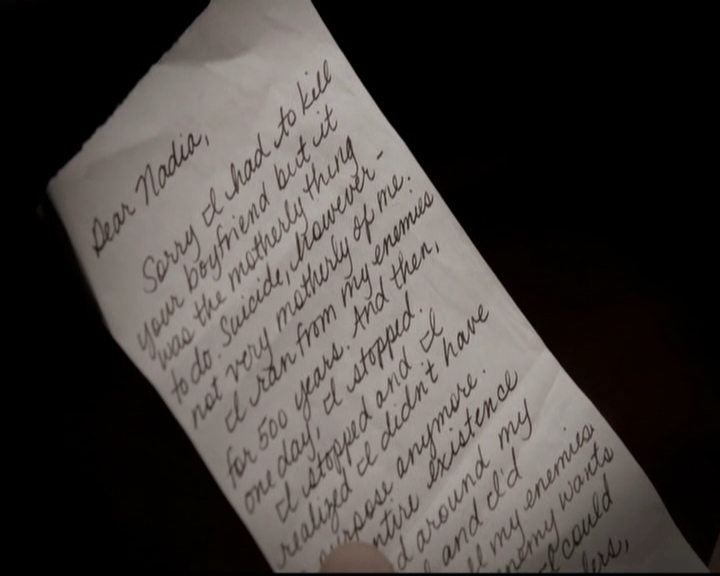 Dear Nadia,
Sorry I had to kill
your boyfriend but it
was the motherly thing
to do. Suicide, however-
not very motherly of me.
I ran from my enemies
for 500 years. And then,
one day, I stopped.
I stopped and I
realized I didn't have
purpose anymore.
entire existence
around my
and I'd
my enemies
enemy wants
I could